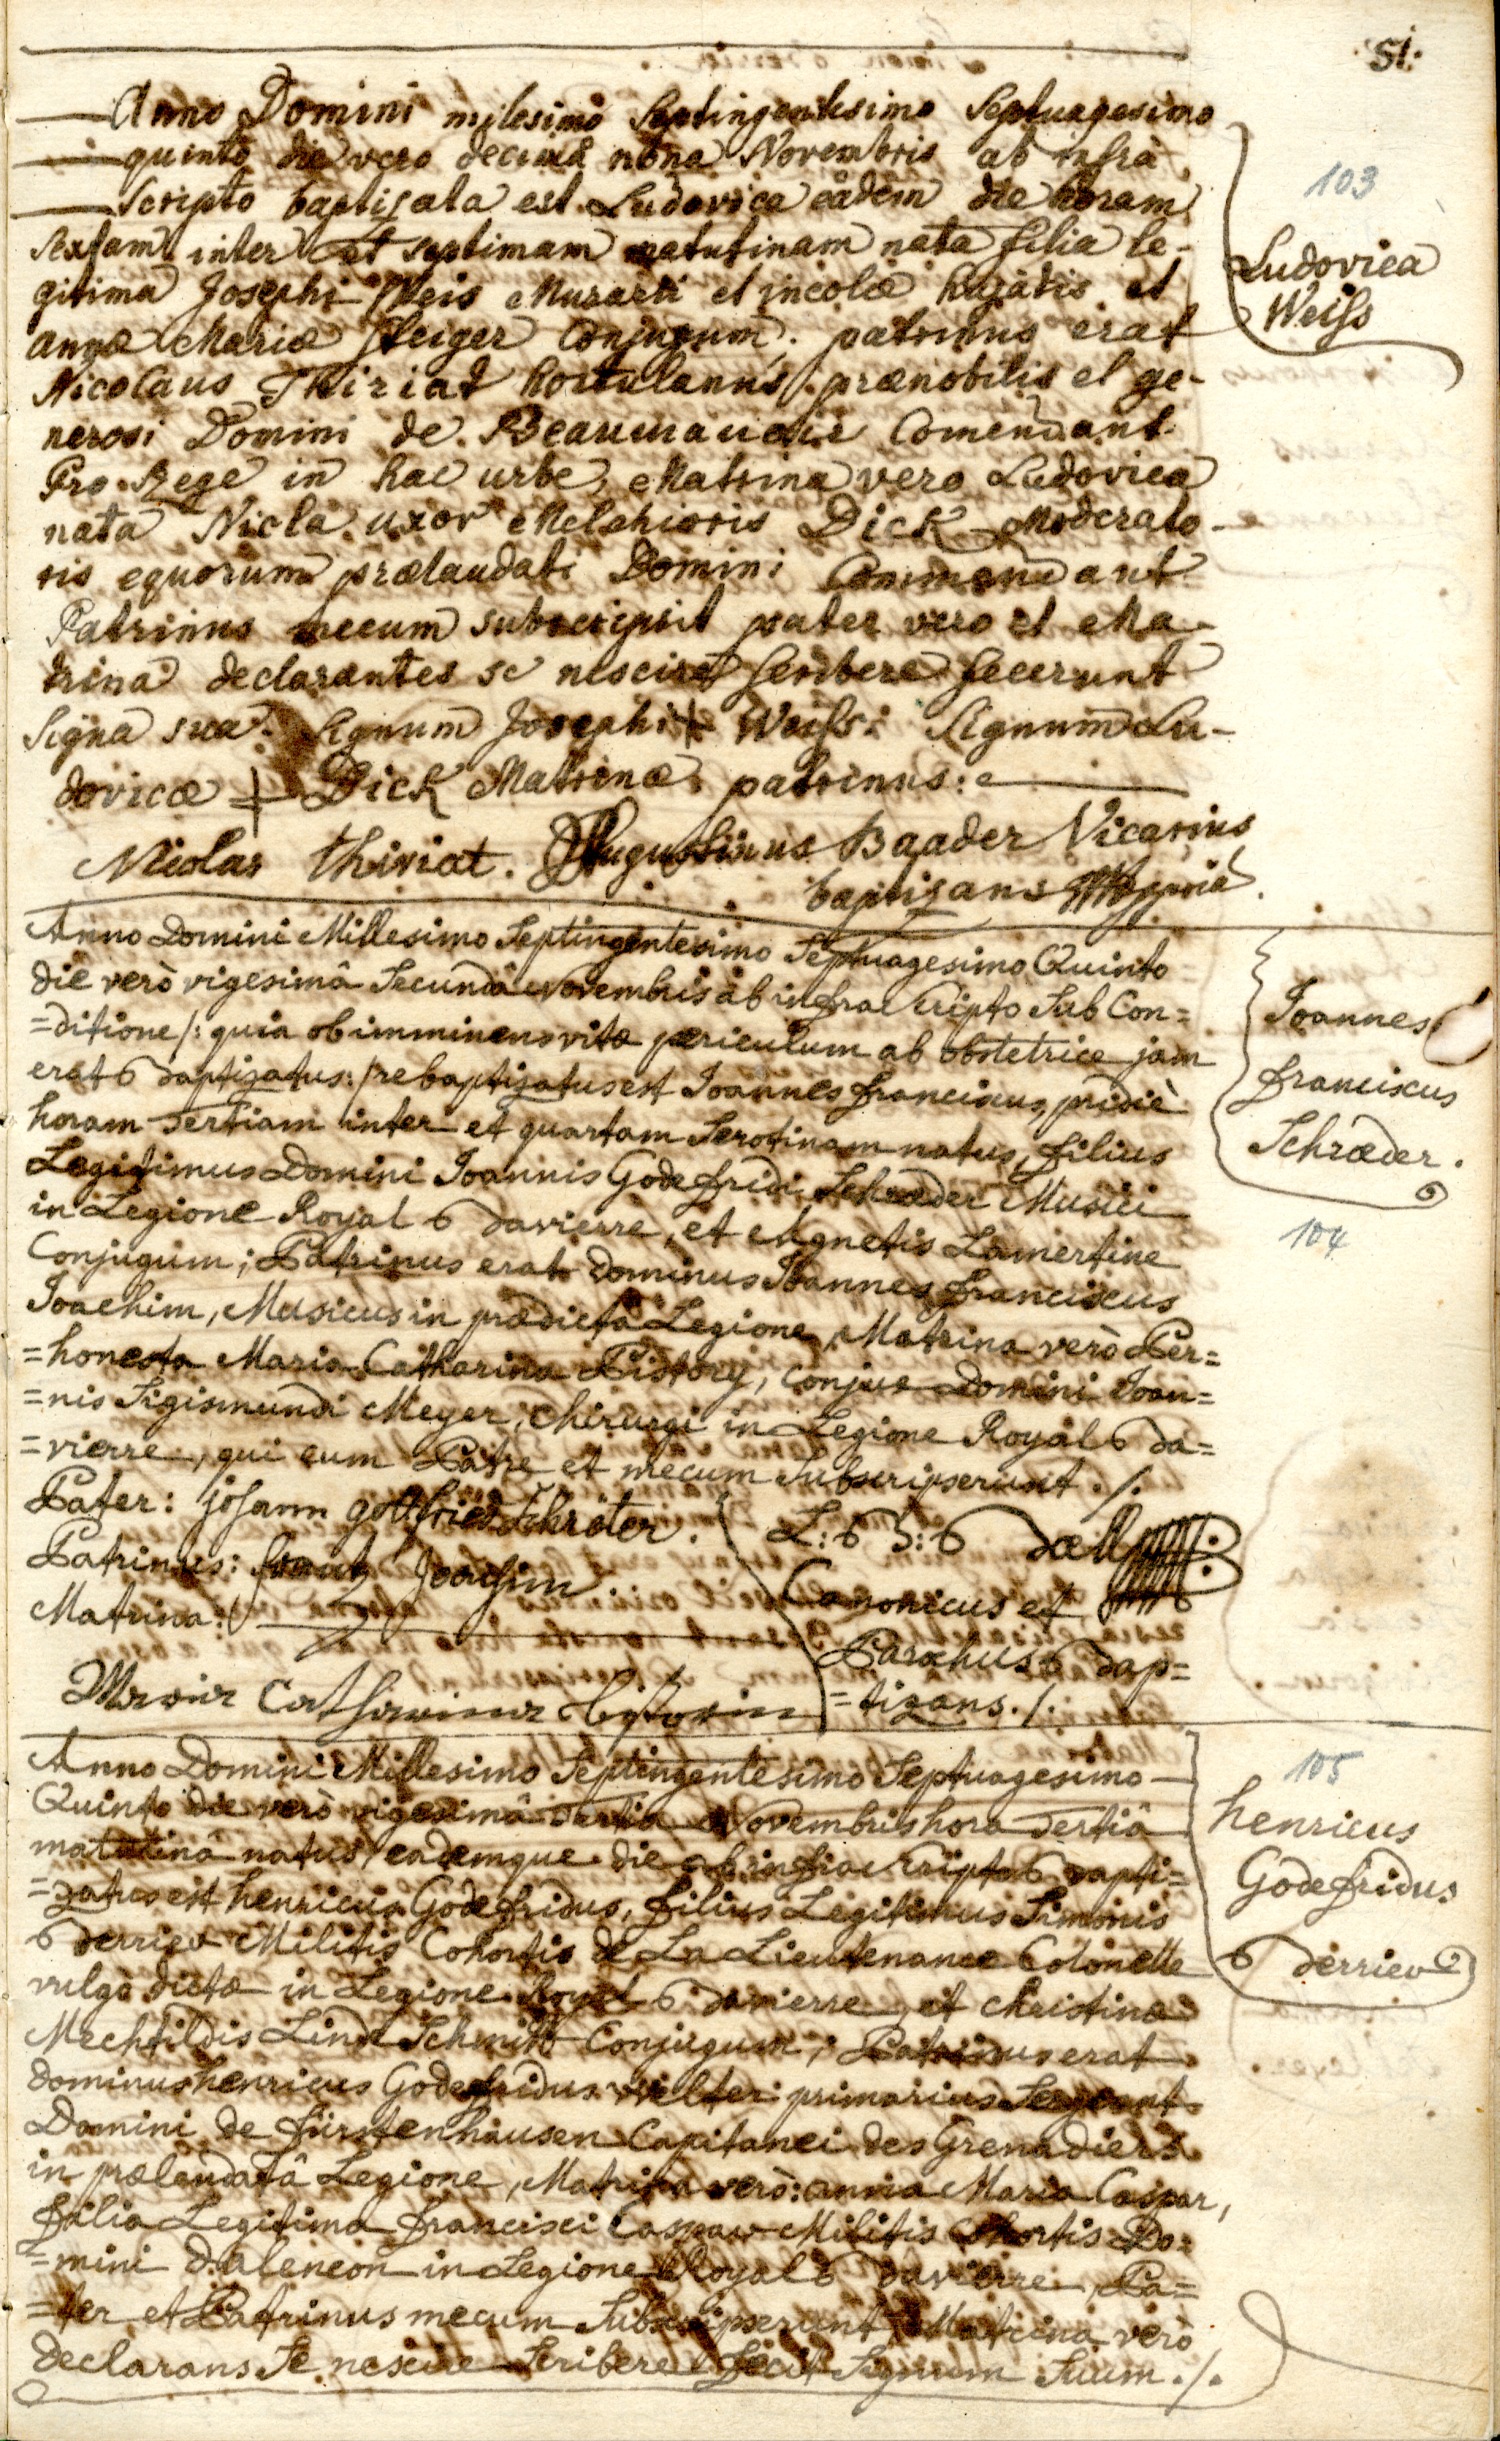 51.
Anno Domini milesimo Septingentesimo Septuagesimo
quinto die vero decimâ nona Novembris ab infrà
Scripto baptizata est Ludovica eâdem die horam
Sextam inter et septimam matutinam nata filia le-
gitima Josephi Weis Murarii et incolæ hujatis et
annæ Mariæ Steiger Conjugum; patrinus erat
Nicolaus Thiriat hortulanus prænobilis et ge-
nerosi Domini de Beaumanoir Comendant
Pro Rege in hac urbe, Matrina vero Ludovica
nata Nicla uxor Melchioris Dick Moderato-
ris equorum prælaudati Domini Commendant
Patrinus mecum subscripsit pater vero et Ma-
trina declarantes se nescire scribere fecerunt
Signa sua. Signum Josephi + Weiss: Signum Lu-
dovicæ + Dick Matrinæ patrinus:
Nicolas thiriat. Augustinus Baader Vicarius
baptizans Mppria
103
Ludovica
Weiss
Anno Domini Millesimo Septingentesimo Septuagesimo Quinto
die verò vigesimâ Secundâ Novembris ab infra Scripto Sub Con=
=ditione /: quia ob imminens vitæ periculum ab obstetrice jam
erat Baptizatus: / rebaptizatus est Joannes franciscus, pridiè
horam Tertiam inter et quartam Serotinam natus, filius
Legitimus Domini Joannis Godefridi Schræder Musici
in Legione Royal Bavierre, et Agnetis Lamertine
Conjugum; Patrinus erat Dominus Joannes franciscus
Joachim, Musicus in prædicta Legione, Matrina verò Per=
=honesta Maria Catharina Pistory, Conjux Domini Joan=
=nis Sigismundi Meyer, Chirurgi in Legione Royal Ba=
=vierre, qui cum Patre et mecum Subscripserunt ./.
Pater: johann gottfried Schröter.
Patrinus: frantz Joachim..
Matrina:
Maria Catharina Pistorin
L: B: Bæll
Canonicus et
Parochus Bap=
=tizans ./.
Joannes
franciscus
Schræder.
104
Anno Domini Millesimo Septingentesimo Septuagesimo
Quinto die verò vigesimâ Tertia Novembris hora Tertiâ
matutinâ natus, eademque die ab infra Scripto Bapti=
=zatus est henricus Godefridus, filius Legitimus Simonis
Berrier Militis Cohortis de La Lieutenance Colonelle
vulgò dictæ in Legione Royal Bavierre, et Christinæ
Mechtildis Lind Schmitt Conjugum; Patrinus erat
Dominus henricus Godefridus primarius Sergeant
Domini de fürstenhäusen Capitanei des Grenadiers
in prælaudatâ Legione, Matrina verò: anna Maria Caspar,
filia Legitima francisci Caspar Militis Cohortis Do=
=mini D'alencon in Legione Royal Bavierre, Pa=
=ter et Patrinus mecum Subscripserunt, Matrina verò
declarans Se nescire Scribere fecit Signum Suum ./.
105
henricus
Godefridus
Berrier